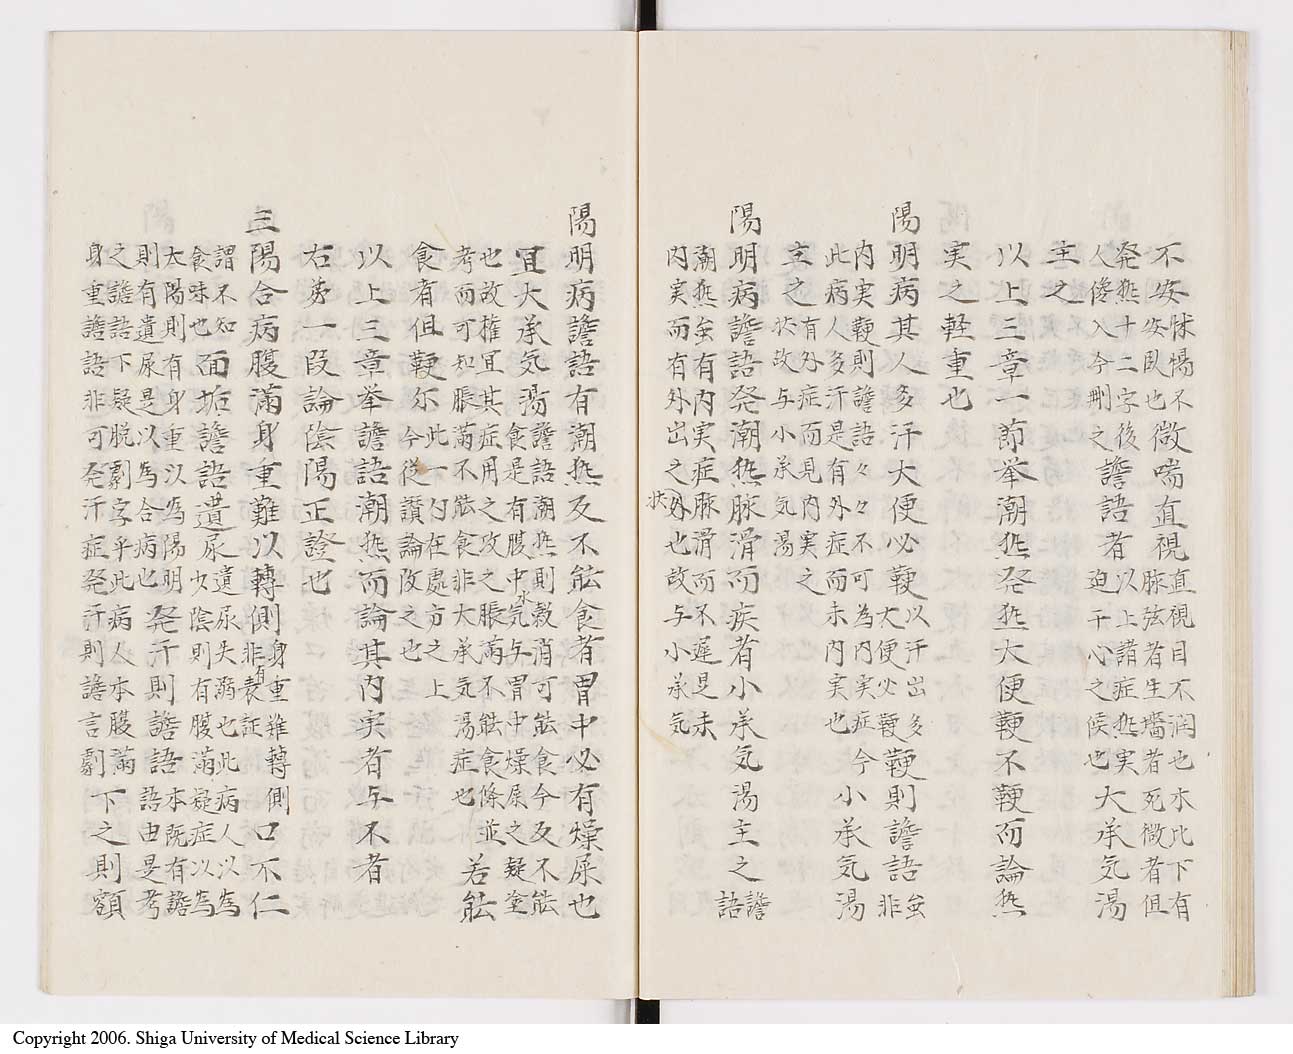 不安怵惕不安臥也微喘直視直視目不润也本此下有脉弦者生墻者死微者但
発热十二字後人儳入今刪之譫語者以上諸症热実迫于心之候也大承气湯
主之
以上三章一節挙潮热発热大便鞕不鞕而論热
実之軽重也
陽明病其人多汗大便必鞕以汗出多大便必鞕鞕則譫語虽非
内実鞕則譫語々々不可為内実症今此病人多汗是有外症而未内実也小承気湯
主之有外症而見内実之状故与小承気湯
陽明病譫語発潮热脉滑而疾者小承気湯主之譫語
潮热虽有内実症脉滑而不遅是未内実而有外出之状外也故与小承気
陽明病譫語有潮热反不能食者胃中必有燥屎也
宜大承気湯譫語潮热則穀消可能食今反不能食是有腹中水気与胃中燥屎之疑塗
也故権宜其症用之攻之脹満不能食條並考而可知脹滿不能食非大承気湯症也若能
食者但鞕尓此一句在處方之上今従讃論改之也
以上三章挙譫語潮热而論其内実者与不者
右第一段論陰陽正證也
三陽合病腹滿身重難以轉側身重難轉側非有表証口不仁
謂不知食味也面垢譫語遺尿遺尿失溺也此病人以為少陰則有腹滿疑症以為
太陽則有身重以為陽明則有遺尿是以為合病也発汗則譫語本既有譫語由是考
之譫語下疑脱劇字乎此病人本腹滿身重譫語非可発汗症発汗則譫言劇下之則額
Copyright 2006. Shiga University of Medical Science Library